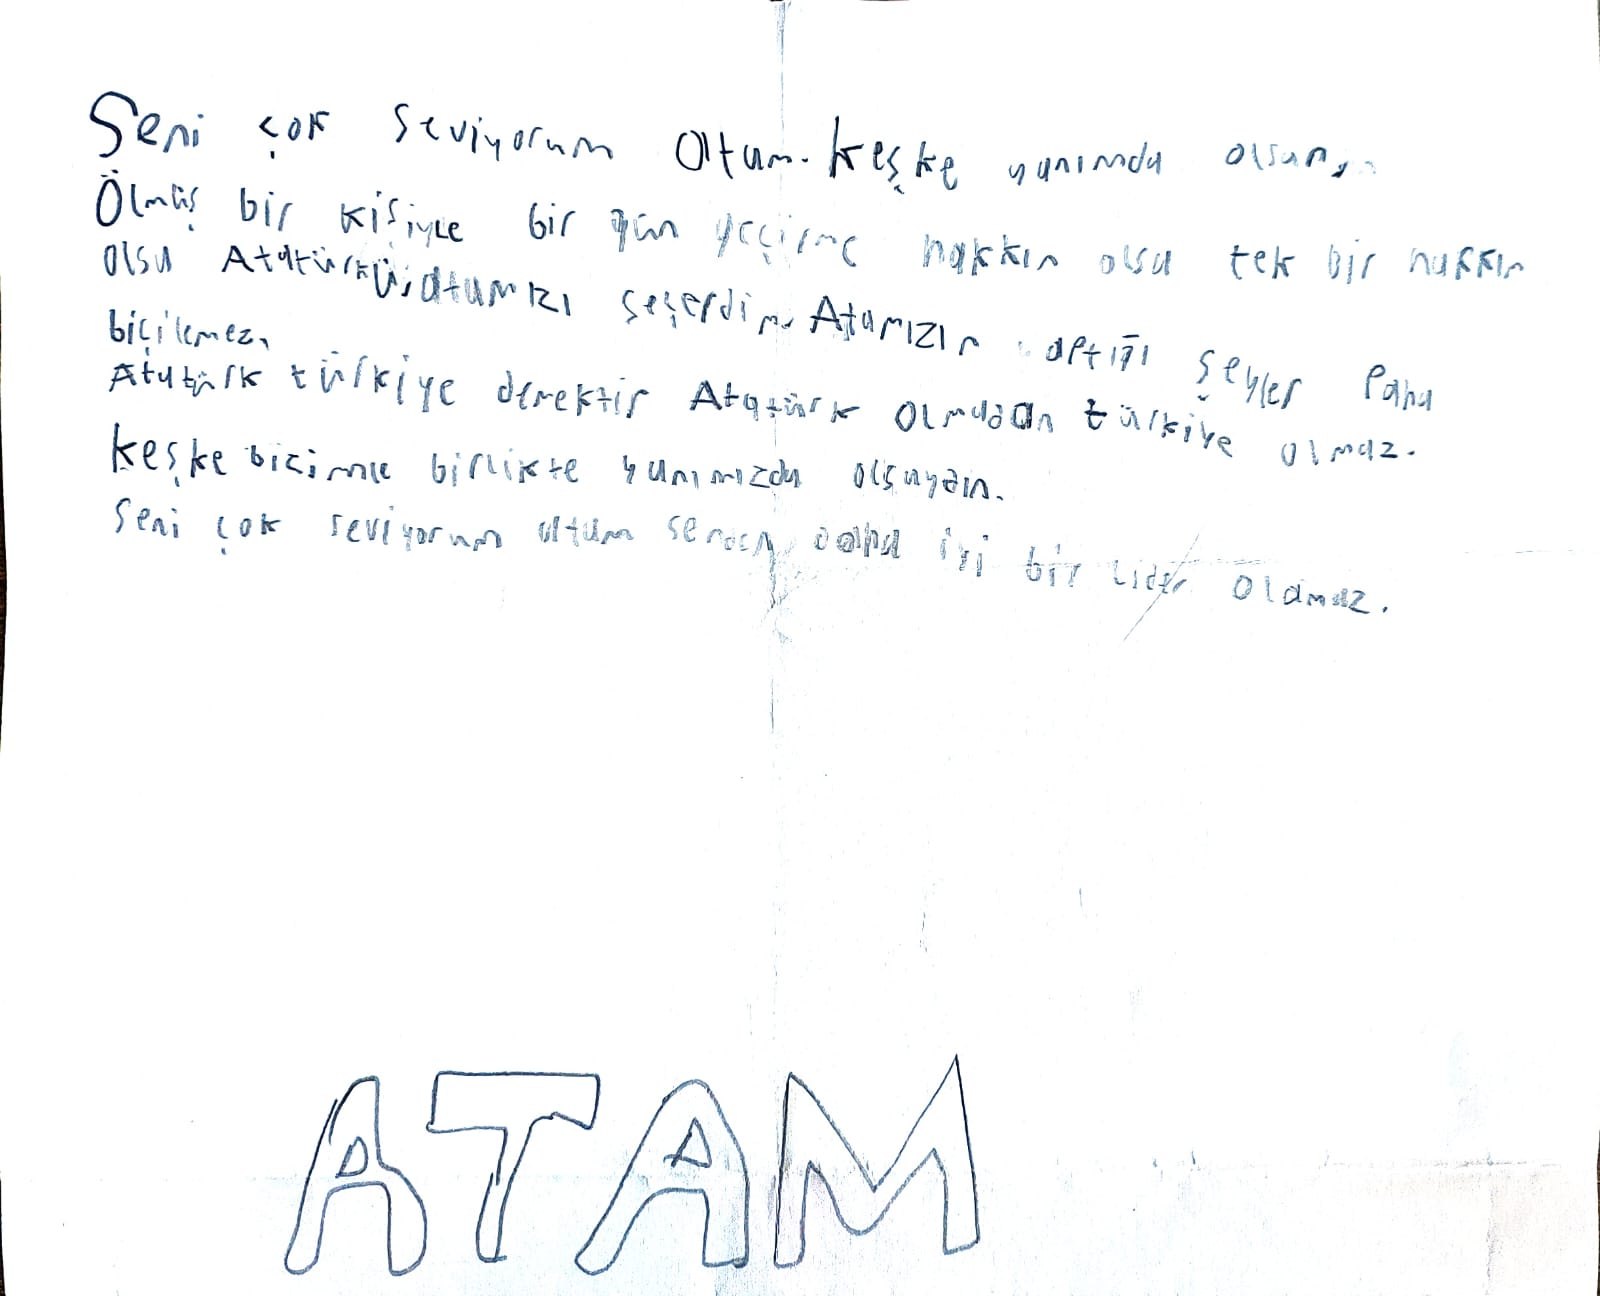 Seni çok seviyorum Atam. keşke yanımda olsan,
Ölmüş bir kişiyle bir gün geçirme hakkın olsa tek bir hakkın
olsa Atatürkü, atamızı seçerdim. Atamızın aptığı şeyler Paha
biçilemez,
Atatürk türkiye demektir Atatürk olmadan türkiye olmaz.
keşke bizimle birlikte yanımızda olsaydın.
Seni çok seviyorum atam senden daha iyi bir Lider olamaz.
ATAM